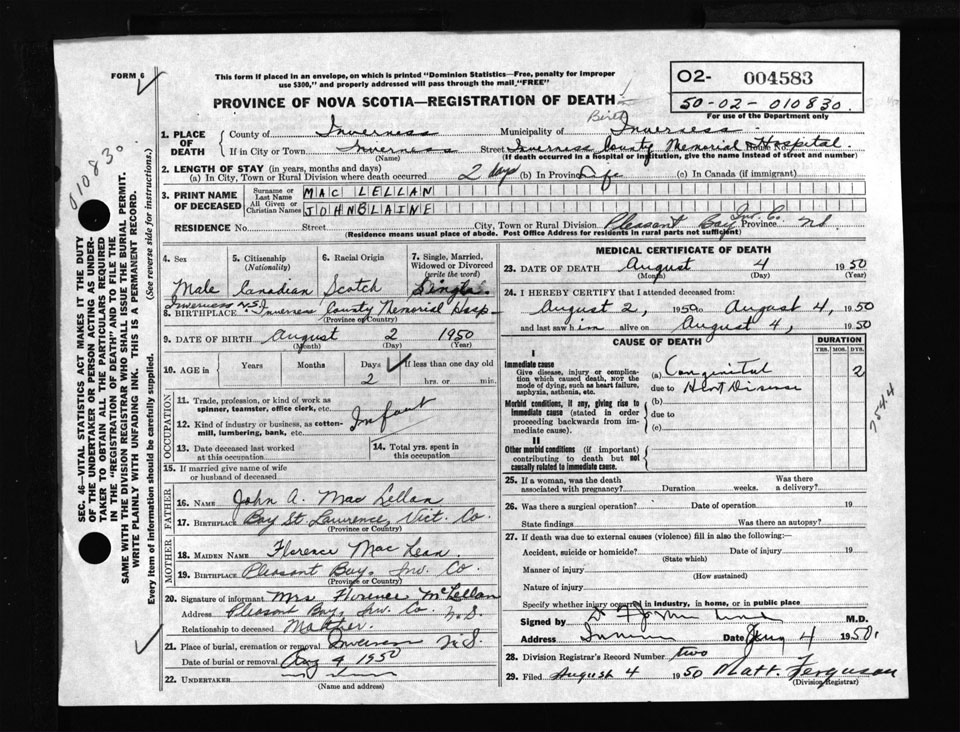 FORM 6
This form if placed in an envelope, on which is printed "Dominion Statistics—Free, penalty for improper
use $300," and properly addressed will pass through the mail "FREE"
PROVINCE OF NOVA SCOTIA—REGISTRATION OF DEATH
O2- 004583
50-02-010830
For use of the Department only
Birth
1. PLACE OF DEATH
County of Inverness Municipality of Inverness
If in City or Town Inverness Street Inverness County Memorial Hospital.
(Name) (If death occurred in a hospital or institution, give the name instead of street and number)
2. LENGTH OF STAY (in years, months and days)
(a) In City, Town or Rural Division where death occurred 2 days (b) In Province Life (c) In Canada (if immigrant)
3. PRINT NAME OF DECEASED
Surname or Last Name MAC LELLAN
All Given or Christian Names JOHN BLAINE
RESIDENCE No. Street City, Town or Rural Division Pleasant Bay Inv. Co. Province N.S.
(Residence means usual place of abode. Post Office Address for residents in rural parts not sufficient)
4. Sex Male
5. Citizenship (Nationality) Canadian
6. Racial Origin Scotch
7. Single, Married, Widowed or Divorced (write the word) Single
Inverness N.S.
8. BIRTHPLACE Inverness County Memorial Hosp
(Province or Country)
9. DATE OF BIRTH August 2 1950
(Month) (Day) (Year)
10. AGE in Years Months Days 2 If less than one day old hrs. or min.
OCCUPATION
11. Trade, profession, or kind of work as spinner, teamster, office clerk, etc. Infant
12. Kind of industry or business, as cotton-mill, lumbering, bank, etc.
13. Date deceased last worked at this occupation
14. Total yrs. spent in this occupation
15. If married give name of wife or husband of deceased
FATHER
16. NAME John A. Mac Lellan
17. BIRTHPLACE Bay St Lawrence, Vict. Co.
(Province or Country)
MOTHER
18. MAIDEN NAME Florence Mac Lean
19. BIRTHPLACE Pleasant Bay, Inv. Co.
(Province or Country)
20. Signature of informant Mrs Florence McLellan
Address Pleasant Bay, Inv. Co. N.S.
Relationship to deceased Mother
21. Place of burial, cremation or removal Inverness N.S.
Date of burial or removal Aug 9 1950
22. UNDERTAKER
(Name and address)
MEDICAL CERTIFICATE OF DEATH
23. DATE OF DEATH August 4 1950
(Month) (Day) (Year)
24. I HEREBY CERTIFY that I attended deceased from:
August 2, 1950 to August 4, 1950
and last saw him alive on August 4, 1950
CAUSE OF DEATH
DURATION
YRS. MOS. DYS.
I
Immediate cause
Give disease, injury or complication which caused death, NOT the mode of dying, such as heart failure, asphyxia, asthenia, etc.
(a) Congenital 2
due to Heart Disease
Morbid conditions, if any, giving rise to immediate cause (stated in order proceeding backwards from immediate cause).
(b)
due to
(c)
II
Other morbid conditions (if important) contributing to death but not causally related to immediate cause.
7544
25. If a woman, was the death associated with pregnancy? Duration weeks. Was there a delivery?
26. Was there a surgical operation? Date of operation 19
State findings Was there an autopsy?
27. If death was due to external causes (violence) fill in also the following:—
Accident, suicide or homicide? Date of injury 19
(State which)
Manner of injury
(How sustained)
Nature of injury
Specify whether injury occurred in industry, in home, or in public place
Signed by M.D.
Address Date Aug 4 1950.
28. Division Registrar's Record Number two
29. Filed August 4 1950 Matt. Ferguson
(Division Registrar)
010830
SEC. 46—VITAL STATISTICS ACT MAKES IT THE DUTY
OF THE UNDERTAKER OR PERSON ACTING AS UNDER-
TAKER TO OBTAIN ALL THE PARTICULARS REQUIRED
IN THE "REGISTRATION OF DEATH" AND TO FILE THE
SAME WITH THE DIVISION REGISTRAR WHO SHALL ISSUE THE BURIAL PERMIT.
WRITE PLAINLY WITH UNFADING INK. THIS IS A PERMANENT RECORD.
Every item of information should be carefully supplied. (See reverse side for instructions.)